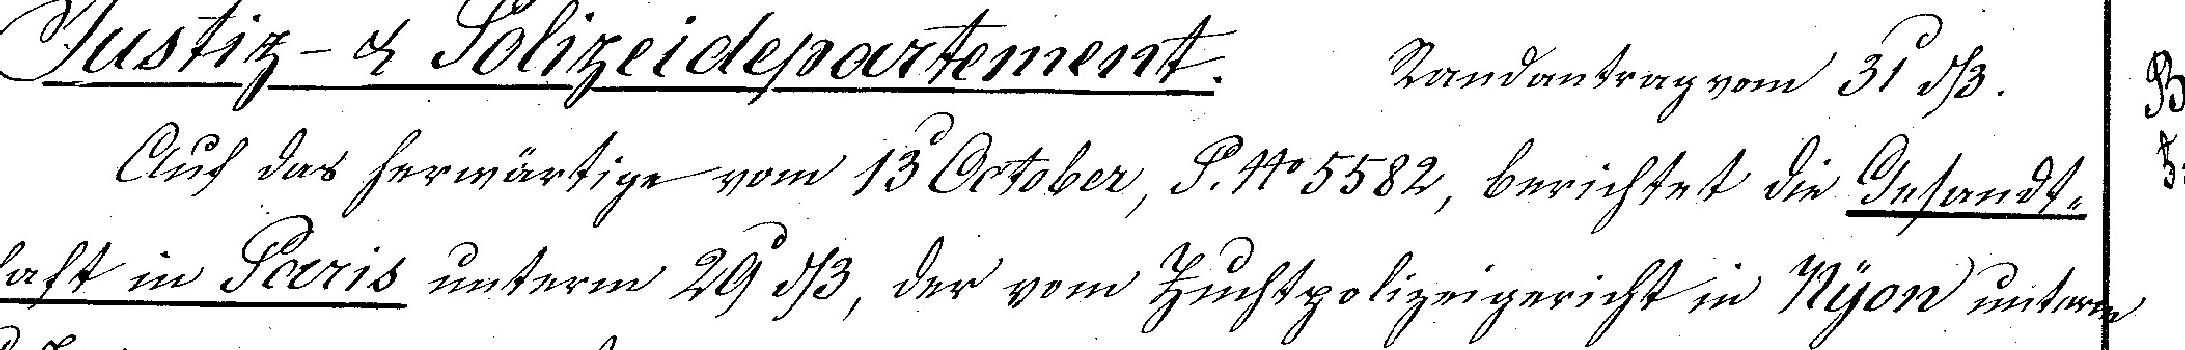 Justiz- & Polizeidepartement. Randantrag vom 31 ds.
Auf das herwärtige vom 13 October, P. No 5582, berichtet die Gesandt=
haft in Paris unterm 29 ds, der vom Zuchtpolizeigericht in Nÿon unterm